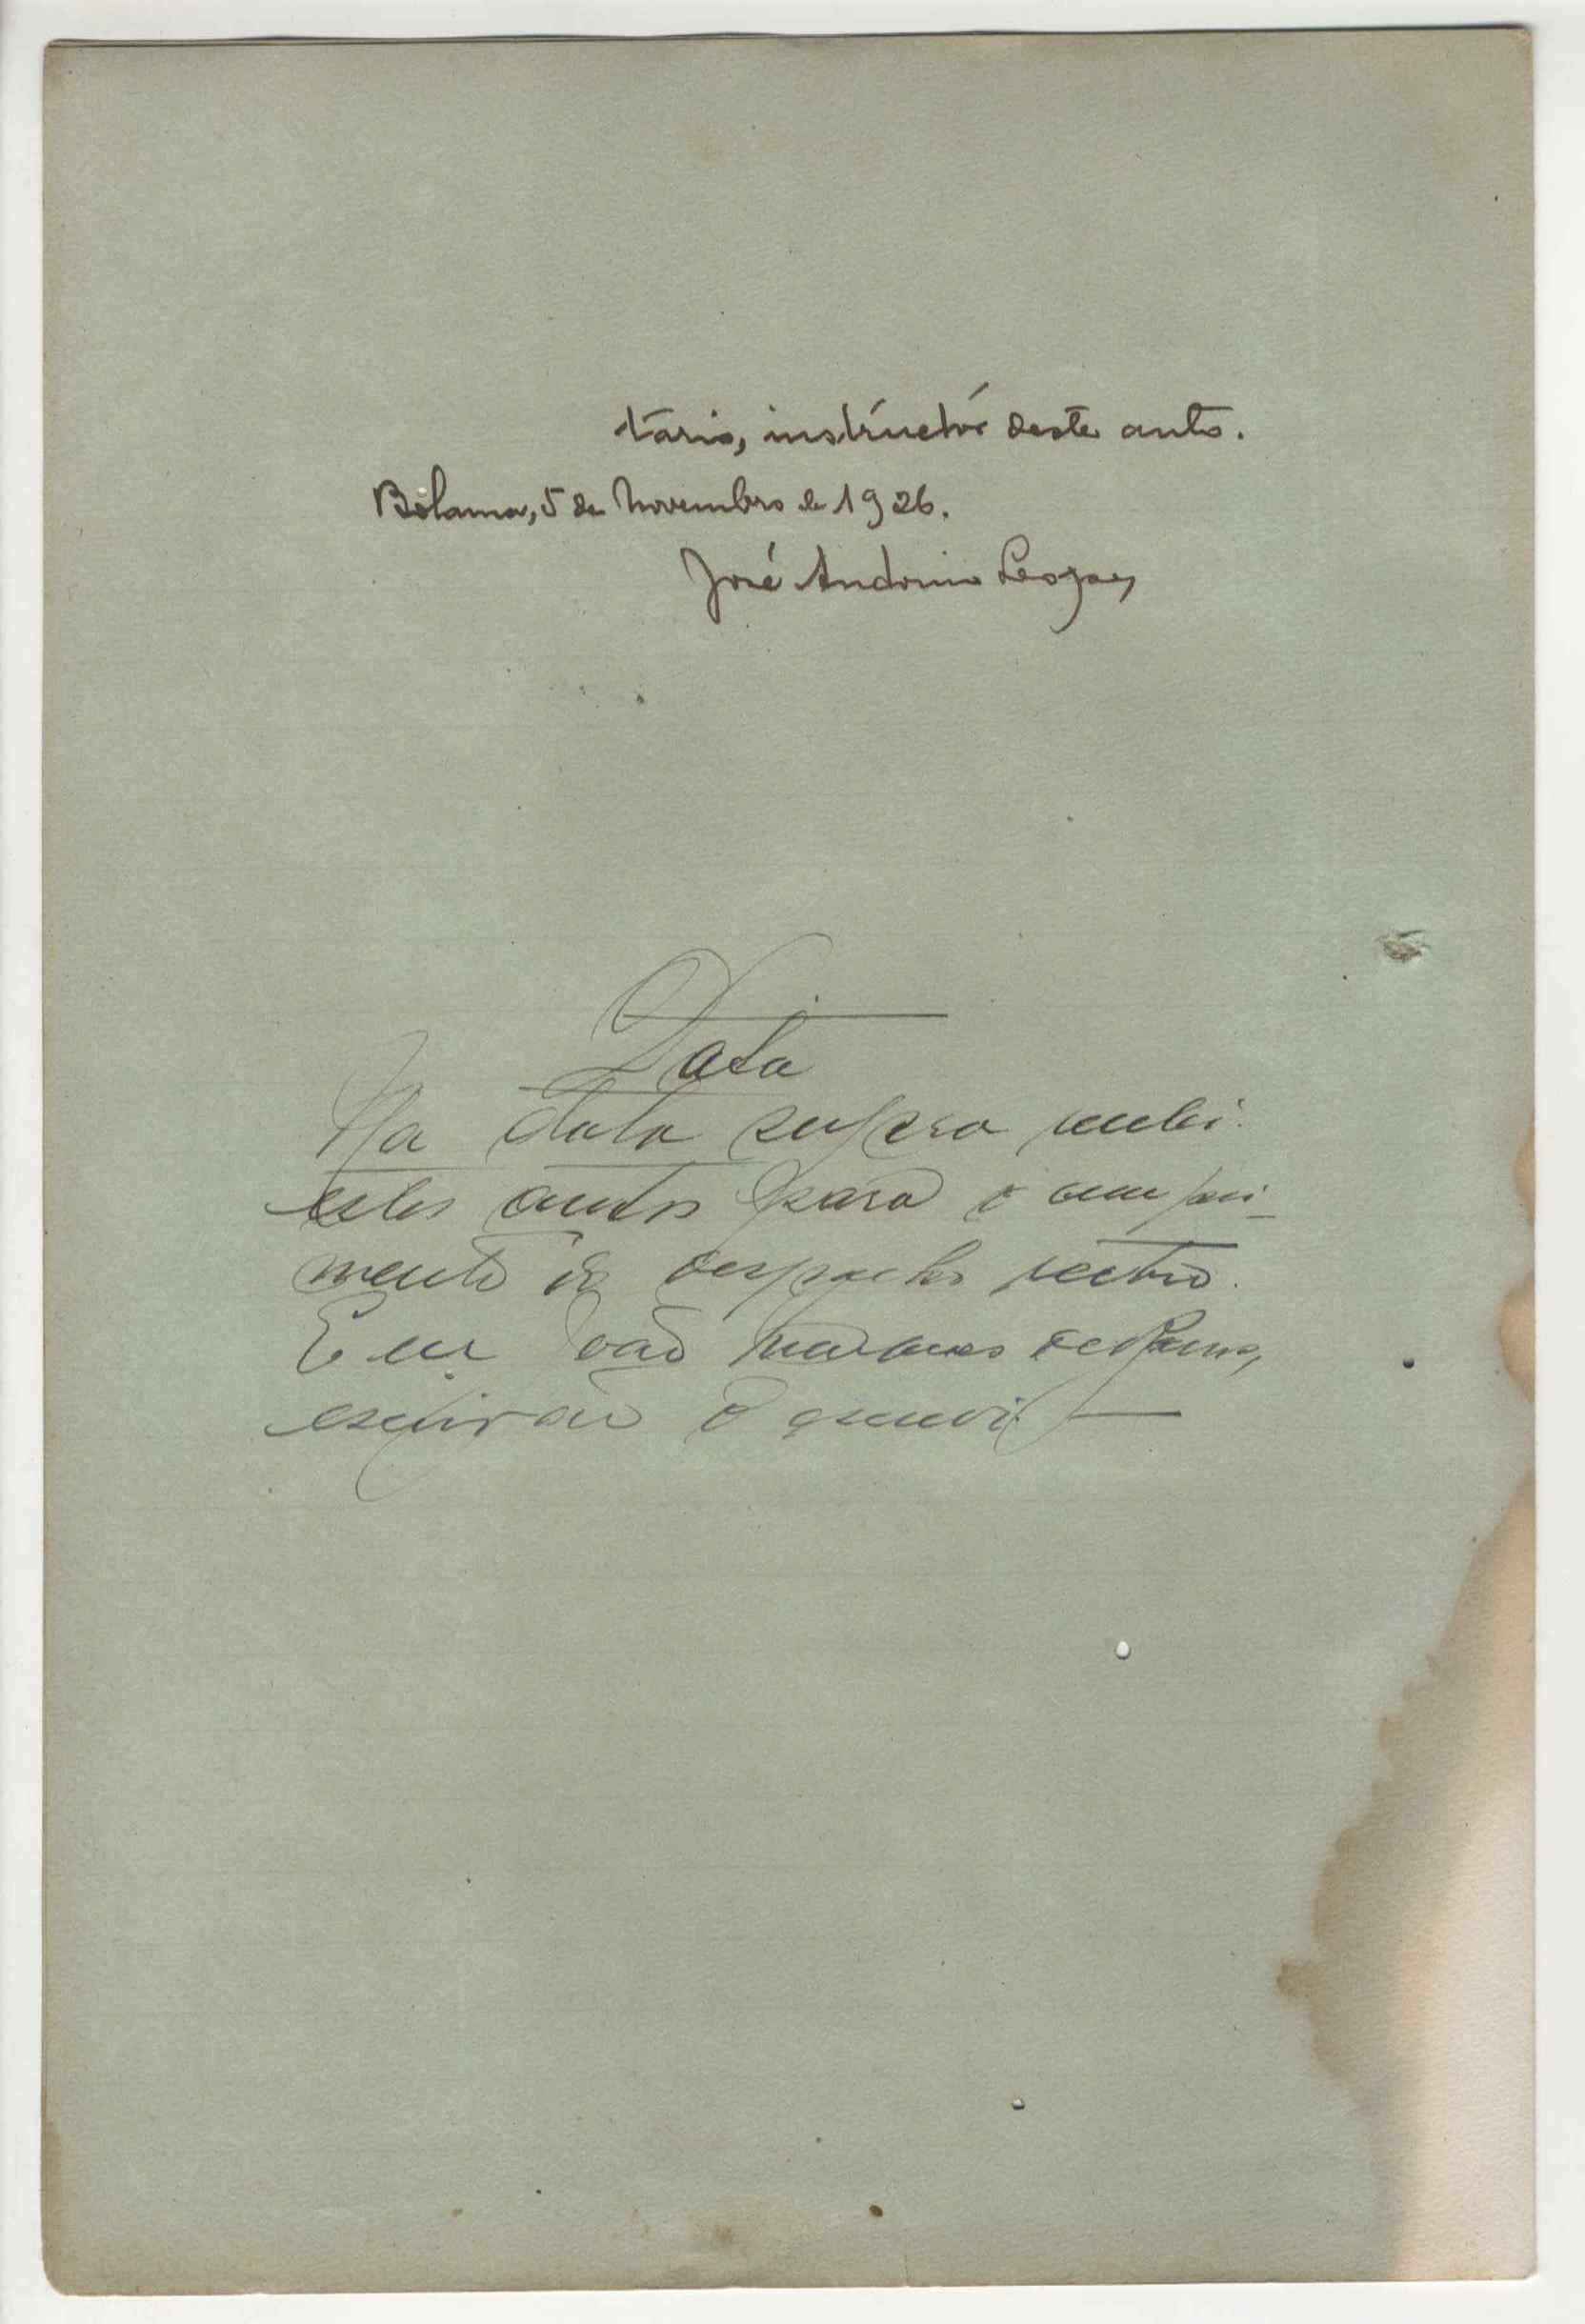 tario, instructor deste auto.
Bolama, 5 de Novembro de 1926.
José Antonio
Data
Na data supra recebi
estes autos para o cumpri-
mento do despacho retro.
Eu João Marques de
escrivão o escrevi